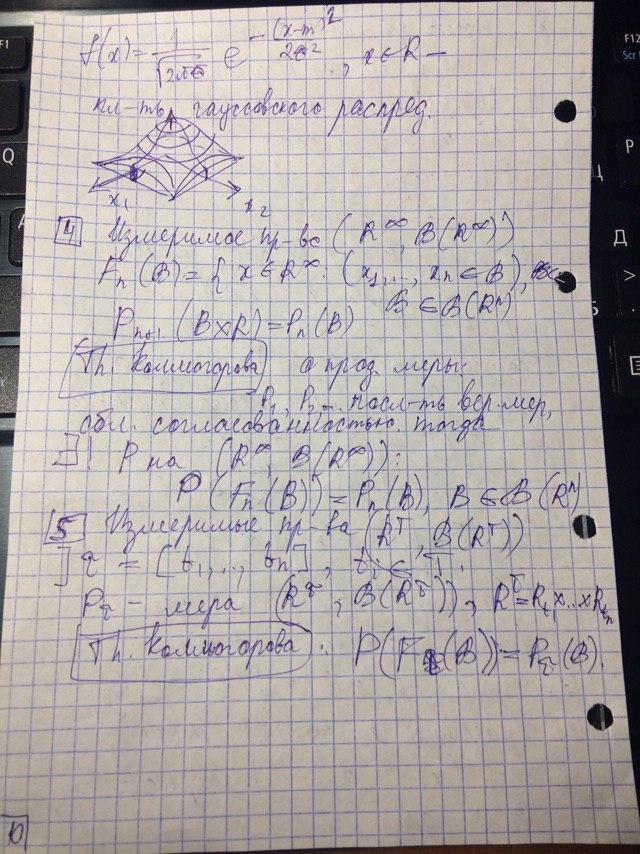 f(x) = 1/√(2πσ) e^{-(x-m)²/2σ²}, x∈R –
пл-ть гауссовского распред.
x₁ x₂
4 Измеримое пр-во (R^∞, B(R^∞))
Fₙ(B) = { x∈R^∞: (x₁,..., xₙ ∈ B),
B ∈ B(Rⁿ)
Pₙ₊₁ (B×R) = Pₙ(B)
Th. Колмогорова о прод. меры:
P₁, P₂... посл-ть вер. мер,
обл. согласованностью тогда
∃! P на (R^∞, B(R^∞)):
P (Fₙ(B)) = Pₙ(B), B ∈ B(Rⁿ)
5 Измеримые пр-ва (R^T, B(R^T))
] τ = [t₁,..., tₙ], tᵢ ∈ T.
P_τ – мера (R^τ, B(R^τ)), R^τ = R_{t₁}×...×R_{tₙ}
Th. Колмогорова: P(F_τ(B)) = P_τ(B).
10
F1
Q
A
F12
Scr
P
Д
>